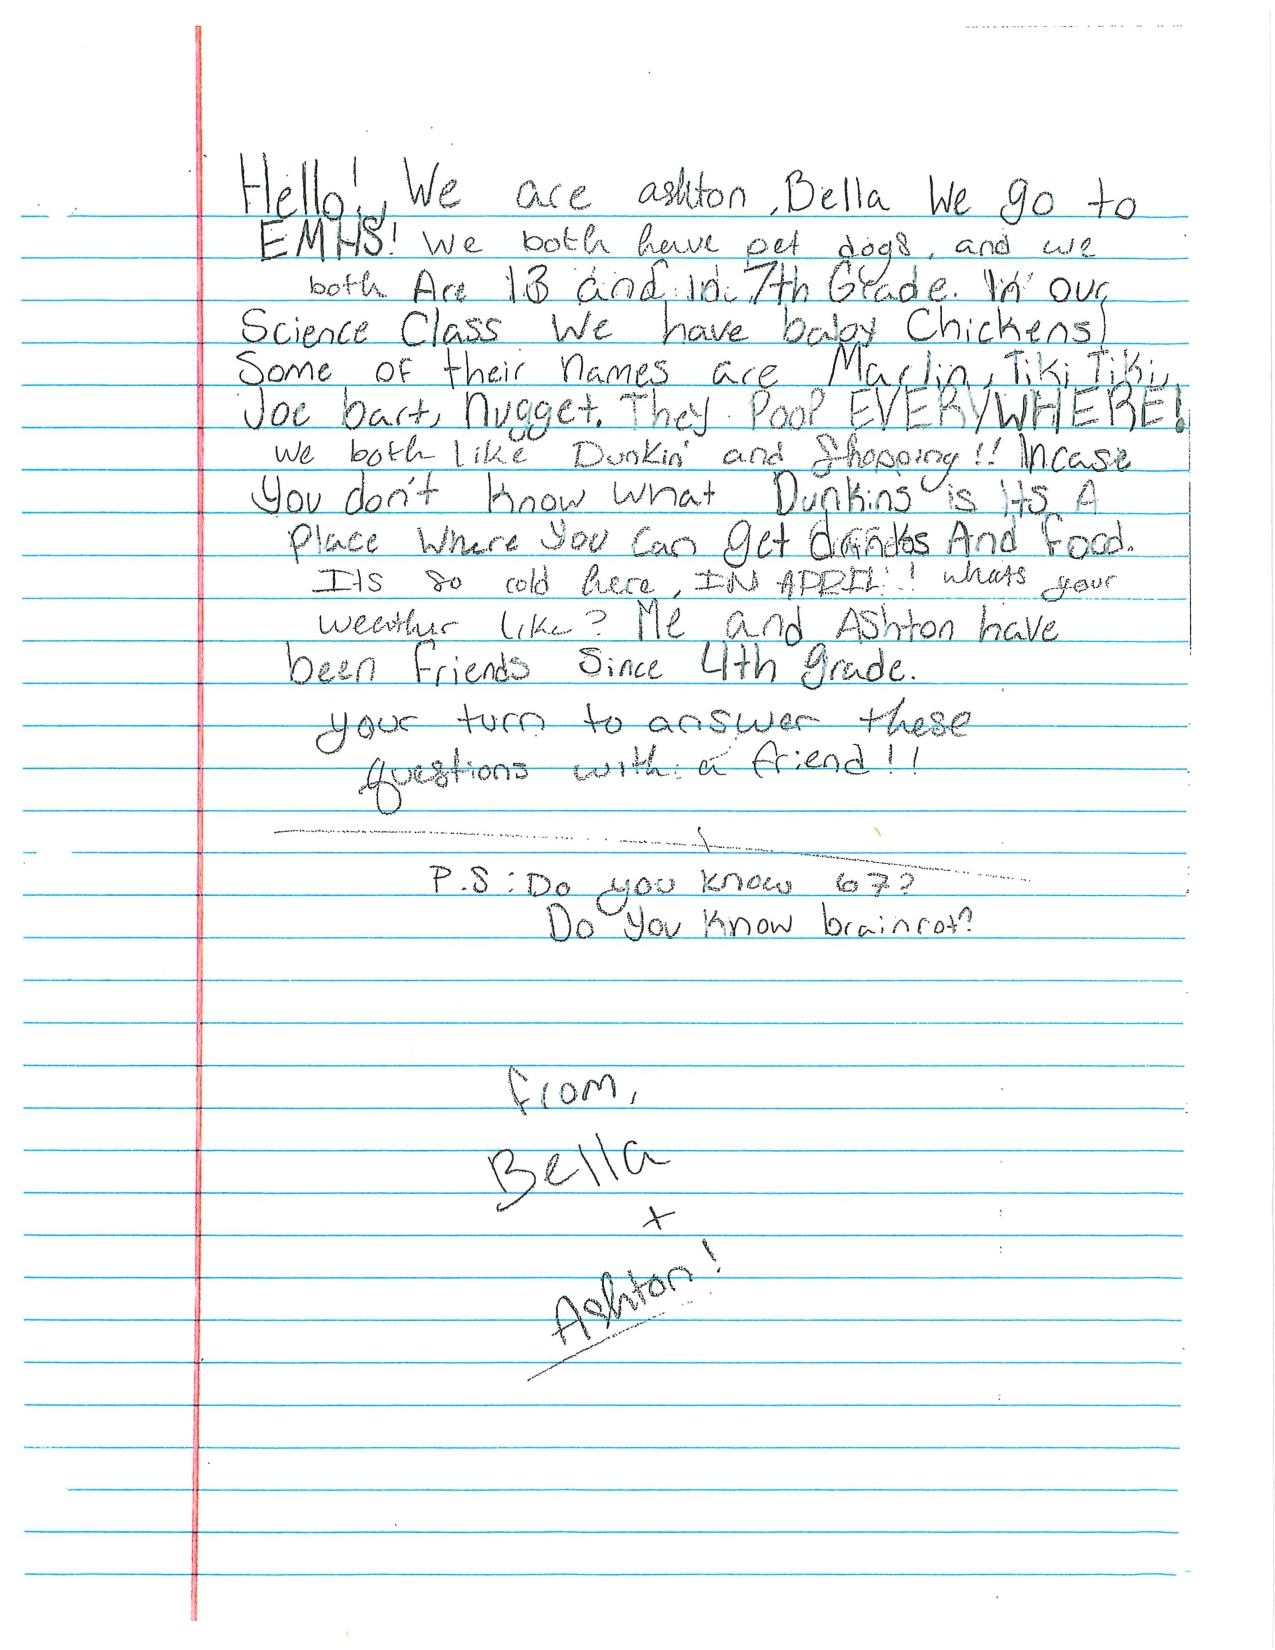 Hello! We are ashton, Bella We go to
EMHS! We both have pet dogs, and we
both Are 13 and in 7th Grade. In our
Science Class We have baby Chickens!
Some of their names are Marlin, Tiki Tiki,
Joe bart, Nugget. They Poop EVERYWHERE!
we both like Dunkin' and Shopping!! Incase
You don't know what Dunkins is its A
Place Where You Can get drinks And Food.
Its so cold here, IN APRIL!! whats your
weather like? Me and Ashton have
been friends Since 4th grade.
your turn to answer these
questions with a friend!!
P.S: Do you know 67?
Do You Know brainrot?
From,
Bella
+
Ashton!